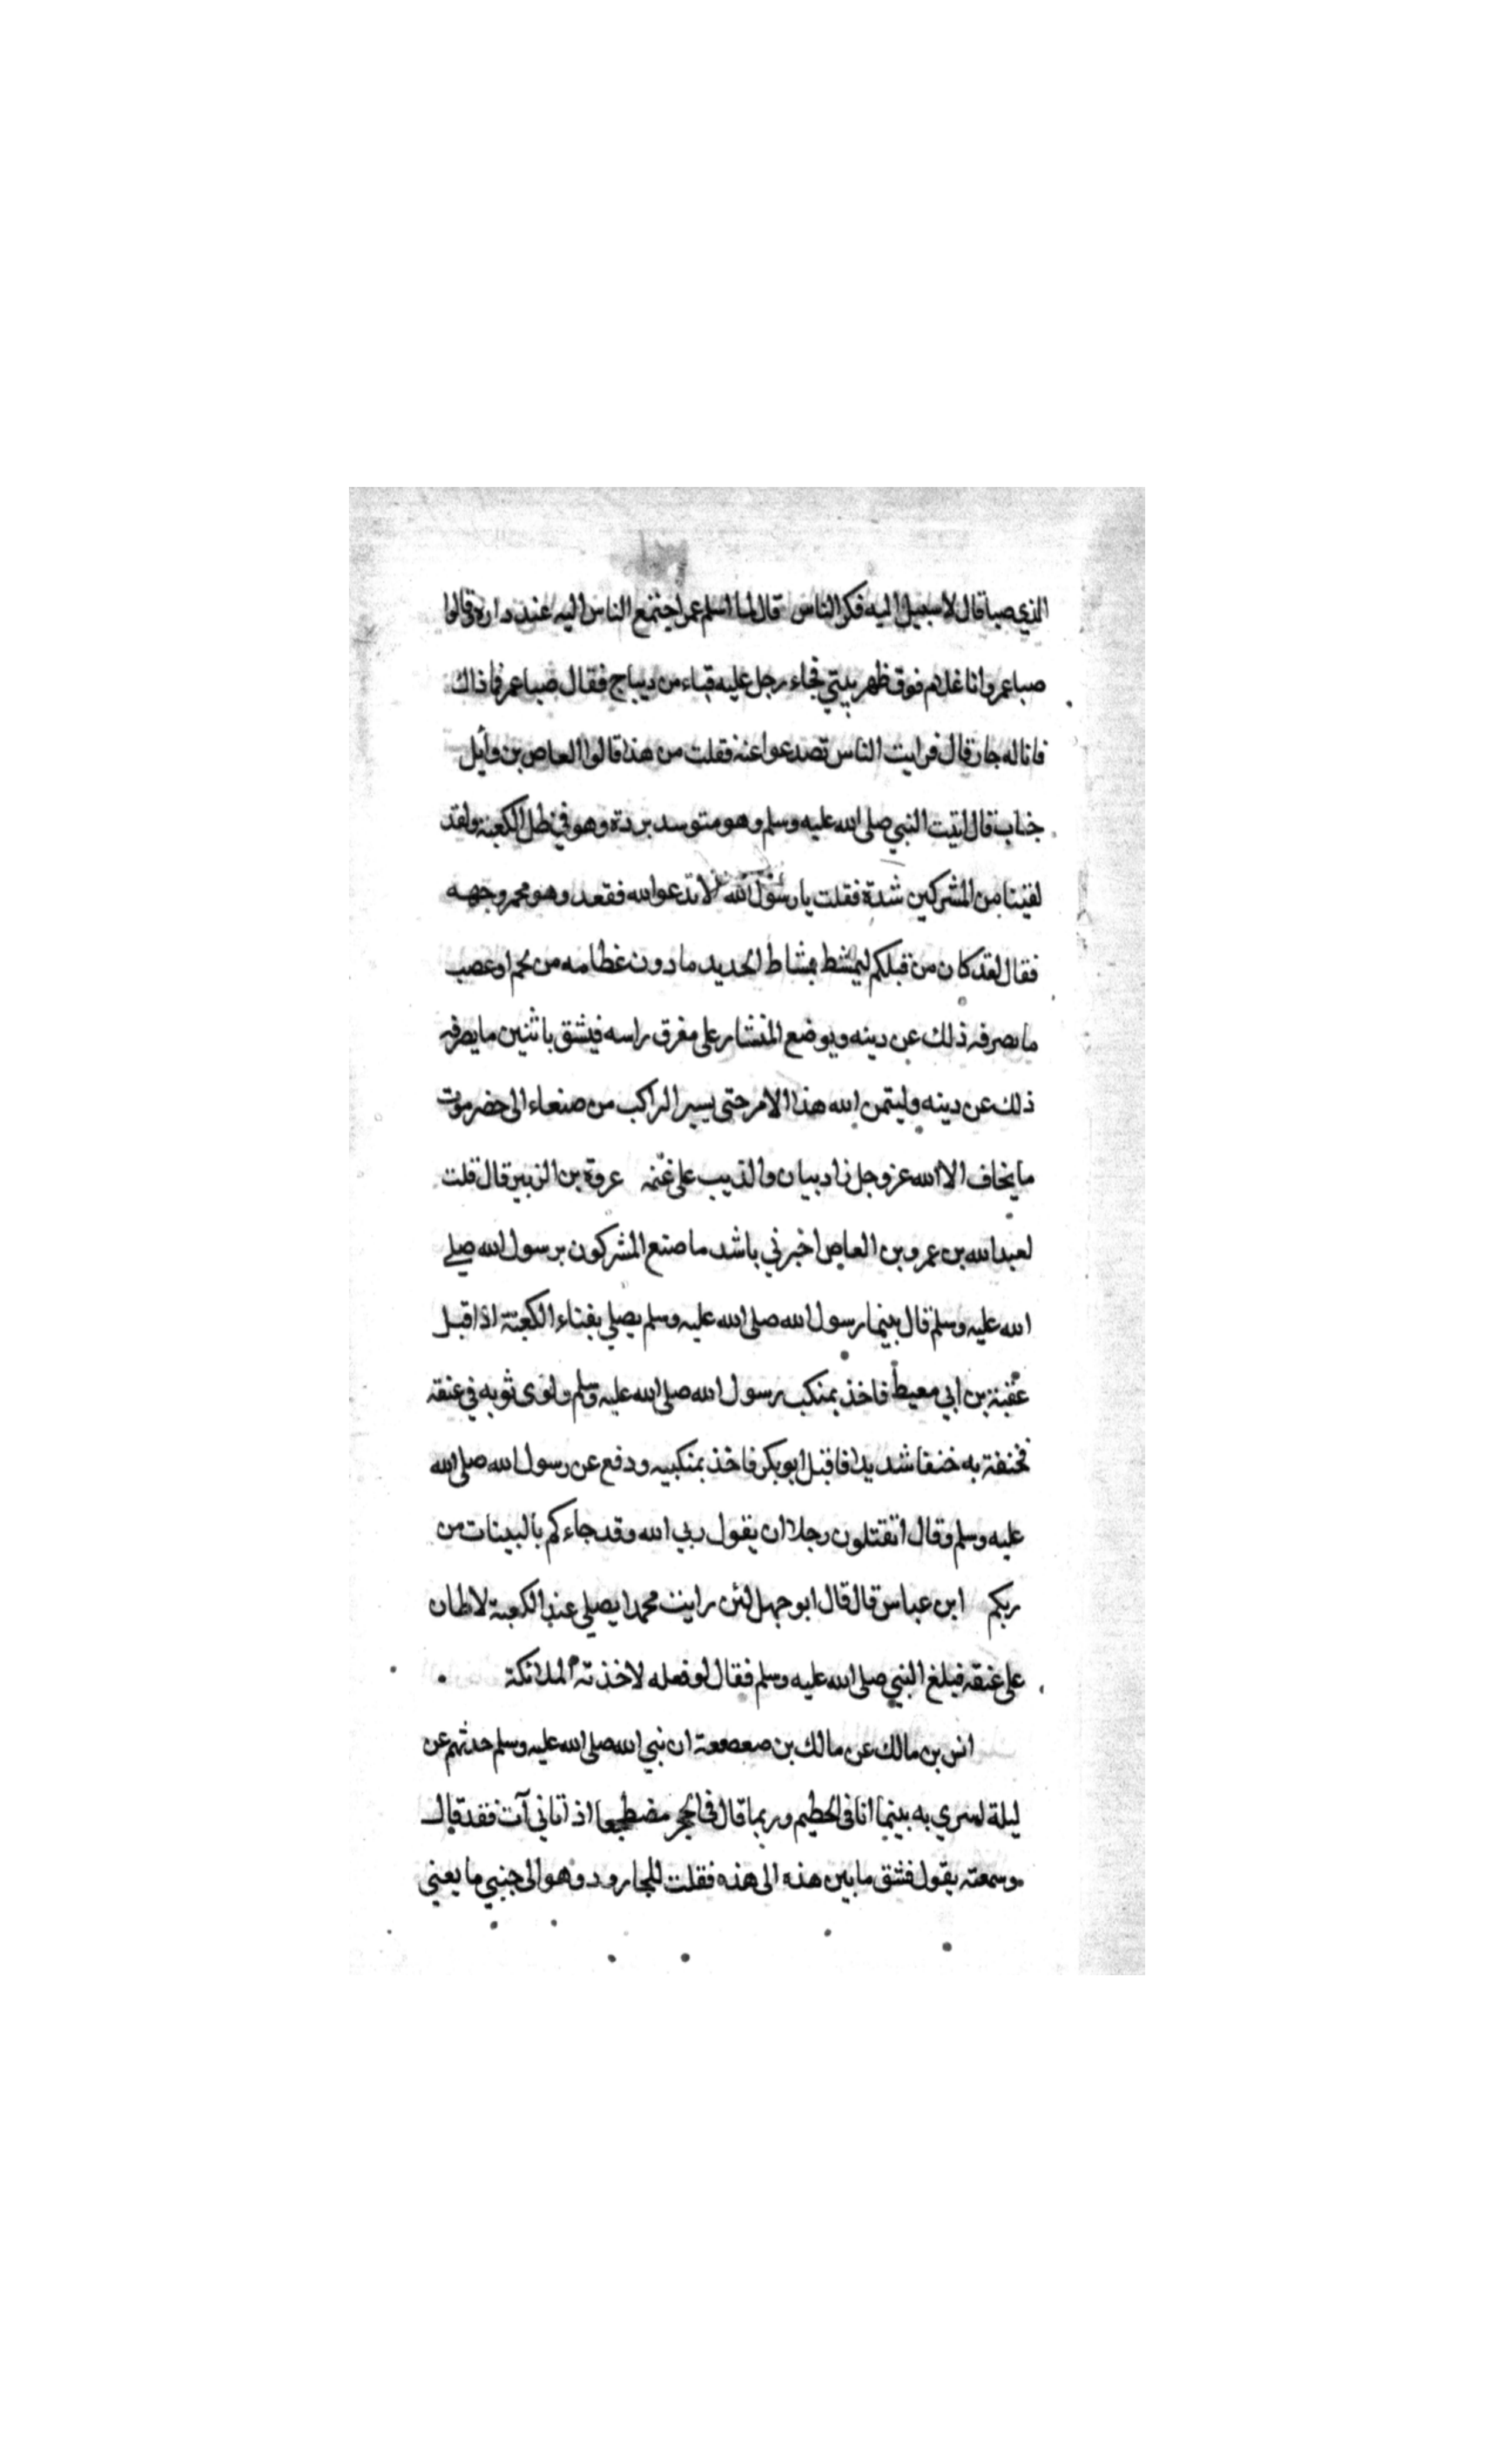 الذي صبا قال لا سبيل اليه فكر الناس قال لما اسلم عمر اجتمع الناس اليه عند داره قالوا
صبا عمر وانا غلام فوق ظهر بيتي فجاء رجل عليه قباء من ديباج فقال صبا عمر فما ذاك
فانا له جار قال فرايت الناس تصدعوا عنه فقلت من هذا قالوا العاص بن وايل
خباب قال اتيت النبي صلى الله عليه وسلم وهو متوسد بردة وهو في ظل الكعبة ولقد
لقينا من المشركين شدة فقلت يا رسول الله الا تدعو الله فقعد وهو محمر وجهه
فقال لقد كان من قبلكم ليمشط بمشاط الحديد ما دون عظامه من لحم او عصب
ما يصرفه ذلك عن دينه ويوضع المنشار على مفرق راسه فيشق باثنين ما يصرفه
ذلك عن دينه وليتمن الله هذا الامر حتى يسير الراكب من صنعاء الى حضرموت
ما يخاف الا الله عز وجل زاد بيان والذيب على غنمه عروة بن الزبير قال قلت
لعبد الله بن عمرو بن العاص اخبرني باشد ما صنع المشركون برسول الله صلى
الله عليه وسلم قال بينما رسول الله صلى الله عليه وسلم يصلي بفناء الكعبة اذ اقبل
عقبة بن ابي معيط فاخذ بمنكب رسول الله صلى الله عليه وسلم ولوى ثوبه في عنقه
فخنقة به خنقا شديدا فاقبل ابو بكر فاخذ بمنكبيه ودفع عن رسول الله صلى الله
عليه وسلم وقال اتقتلون رجلا ان يقول ربي الله وقد جاءكم بالبينات من
ربكم ابن عباس قال قال ابو جهل لئن رايت محمدا يصلي عند الكعبة لاطان
على عنقه فبلغ النبي صلى الله عليه وسلم فقال لو فعله لاخذته الملائكة
انس بن مالك عن مالك بن صعصعة ان نبي الله صلى الله عليه وسلم حدثهم عن
ليلة اسري به بينما انا في الحطيم وربما قال في الحجر مضطجعا اذ اتاني آت فقد قال
وسمعته يقول فشق ما بين هذه الى هذه فقلت للجارود وهو الى جنبي ما يعني